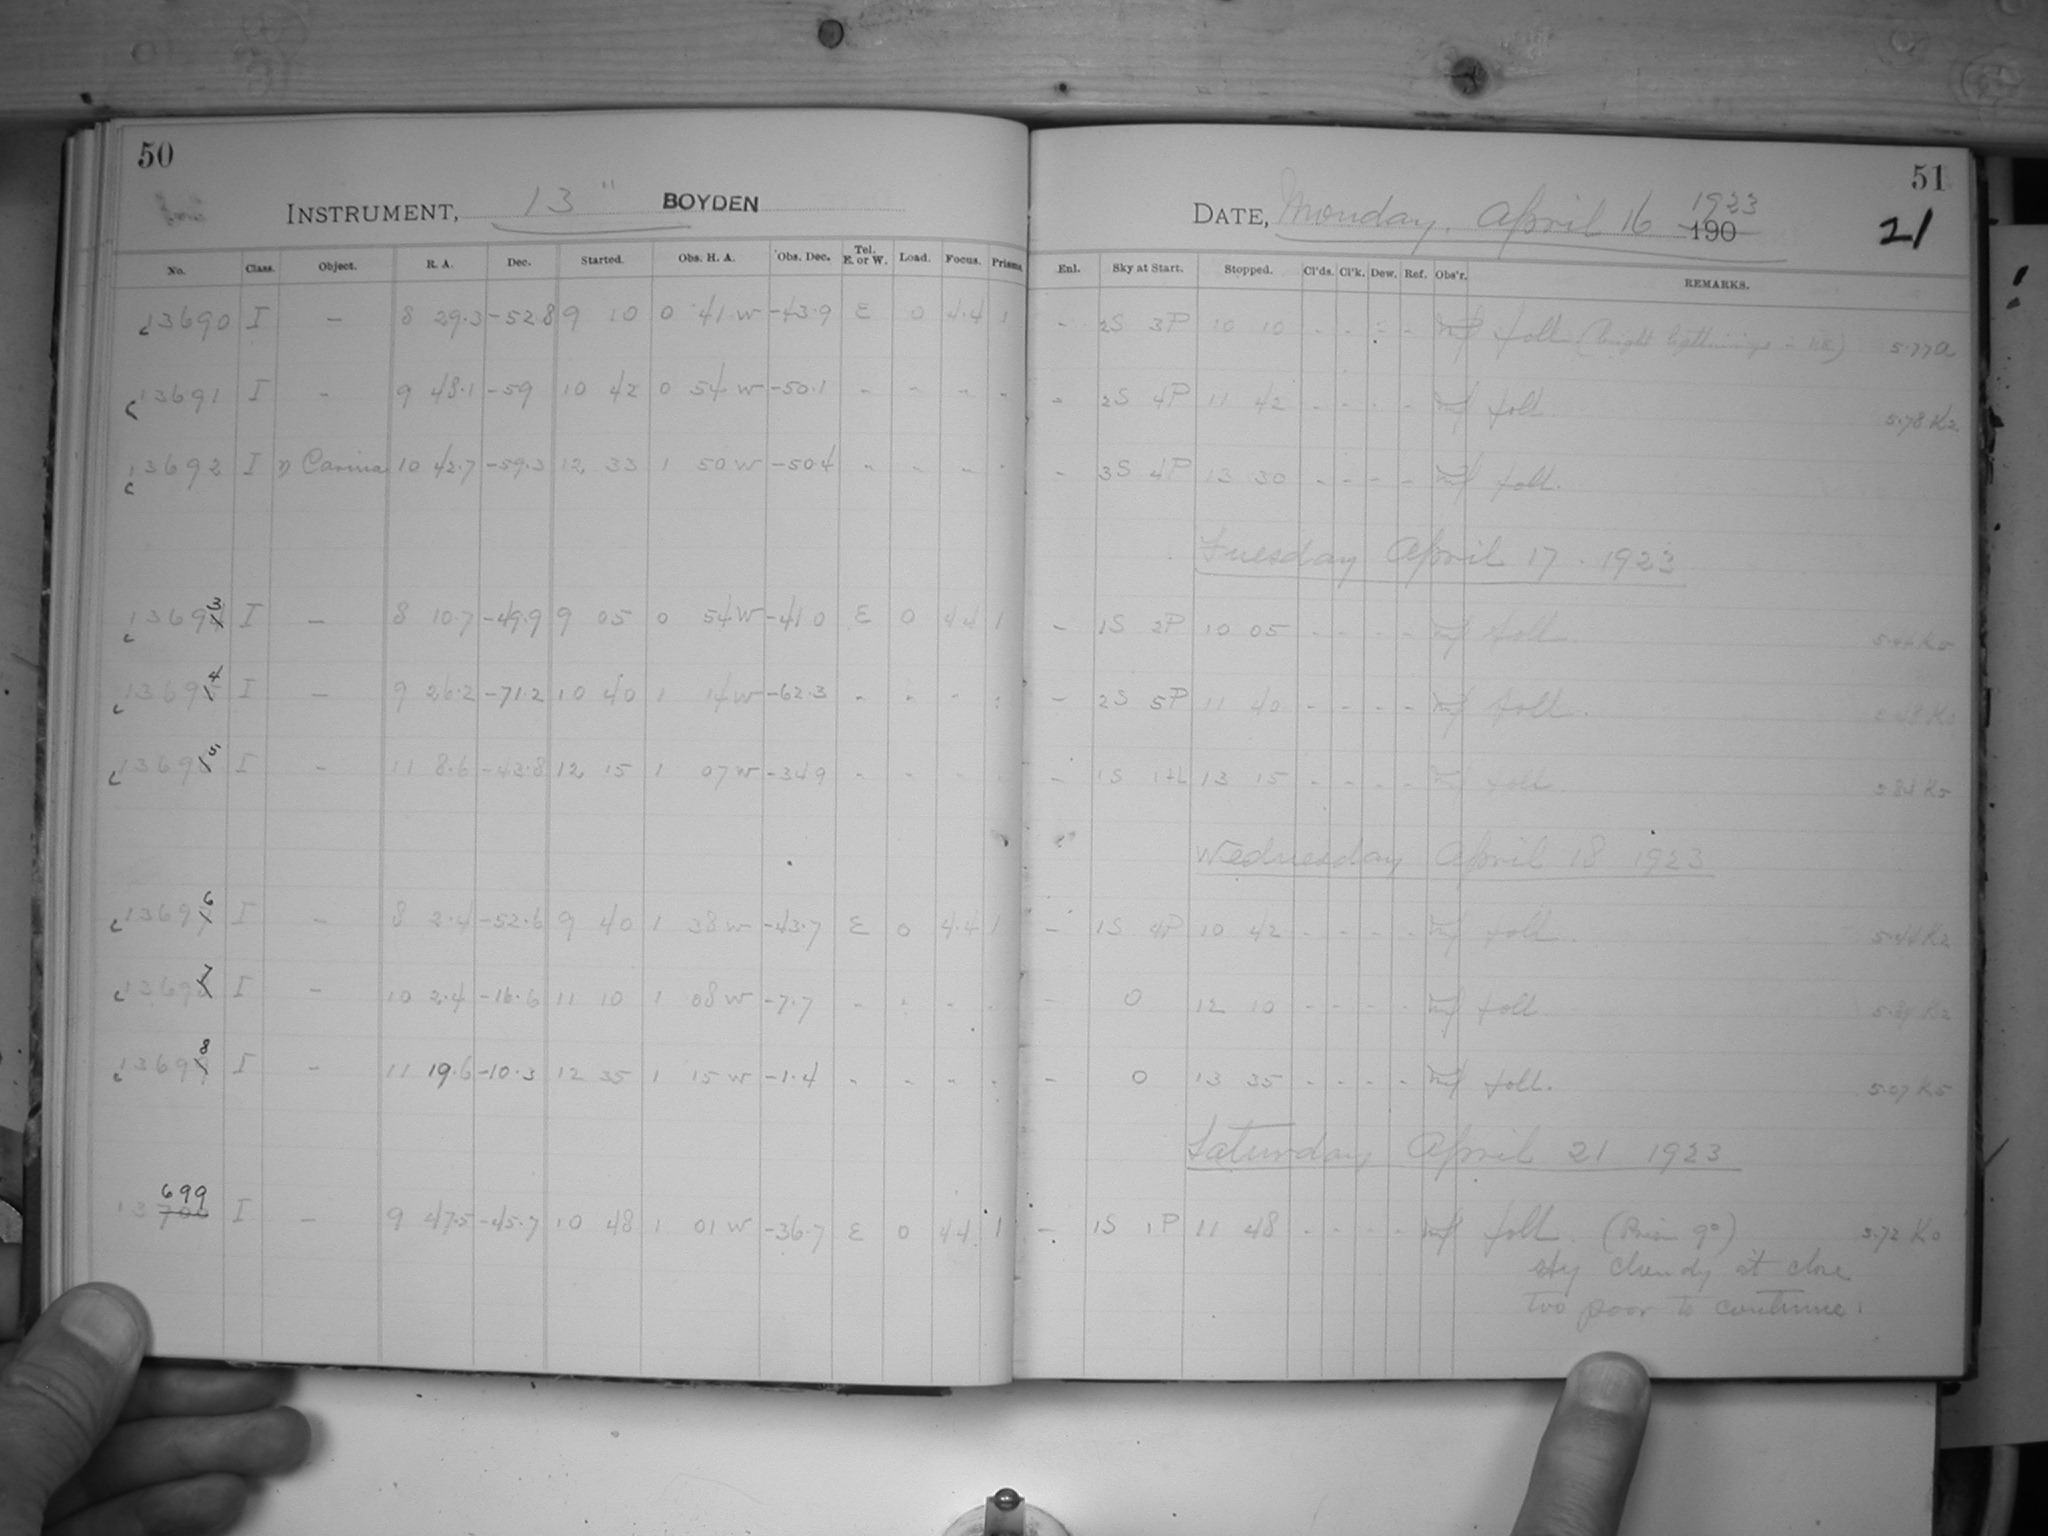 50
INSTRUMENT, 13" BOYDEN
No. Class. Object. R. A. Dec. Started. Obs. H. A. Obs. Dec. Tel. E. or W. Load. Focus. Prisms
13690 I — 8 29.3 -52.8 9 10 0 41 W -43.9 E 0 4.4 1
13691 I - 9 48.1 -59 10 42 0 54 W -50.1 - - - -
13692 I η Carina 10 42.7 -59.3 12 33 1 50 W -50.4 - - - -
13693 I — 8 10.7 -49.9 9 05 0 54 W -41 0 E 0 4.4 1
13694 I — 9 26.2 -71.2 10 40 1 14 W -62.3 - - - :
13695 I - 11 8.6 -43.8 12 15 1 07 W -34 9 - - -
13696 I - 8 2.4 -52.6 9 40 1 38 W -43.7 E 0 4.4 1
13697 I - 10 2.4 -16.6 11 10 1 08 W -7.7 - - - -
13698 I - 11 19.6 -10.3 12 35 1 15 W -1.4 - - - -
699
13 700 I — 9 47.5 -45.7 10 48 1 01 W -36.7 E 0 4.4 1
51
DATE, Monday, April 16 1923
190
21
Enl. Sky at Start. Stopped. Cl'ds. Cl'k. Dew. Ref. Obs'r. REMARKS.
- 2S 3P 10 10 - - - - foll. (bright 5.77a
- 2S 4P 11 42 - - - - foll. 5.78 K2
- 3S 4P 13 30 - - - - foll.
Tuesday April 17. 1923
- 1S 2P 10 05 - - - - foll. 5.44 K5
- 2S 5P 11 40 - - - - foll.
- 1S 13 15 - - - - foll.
Wednesday April 18 1923
- 1S 4P 10 42 - - - - foll.
- 0 12 10 - - - - foll.
- 0 13 35 - - - - foll. 5.07 K5
Saturday April 21 1923
- 1S 1P 11 48 - - - - foll. (Prism 9°) 5.72 K0
sky cloudy at close
too poor to continue.